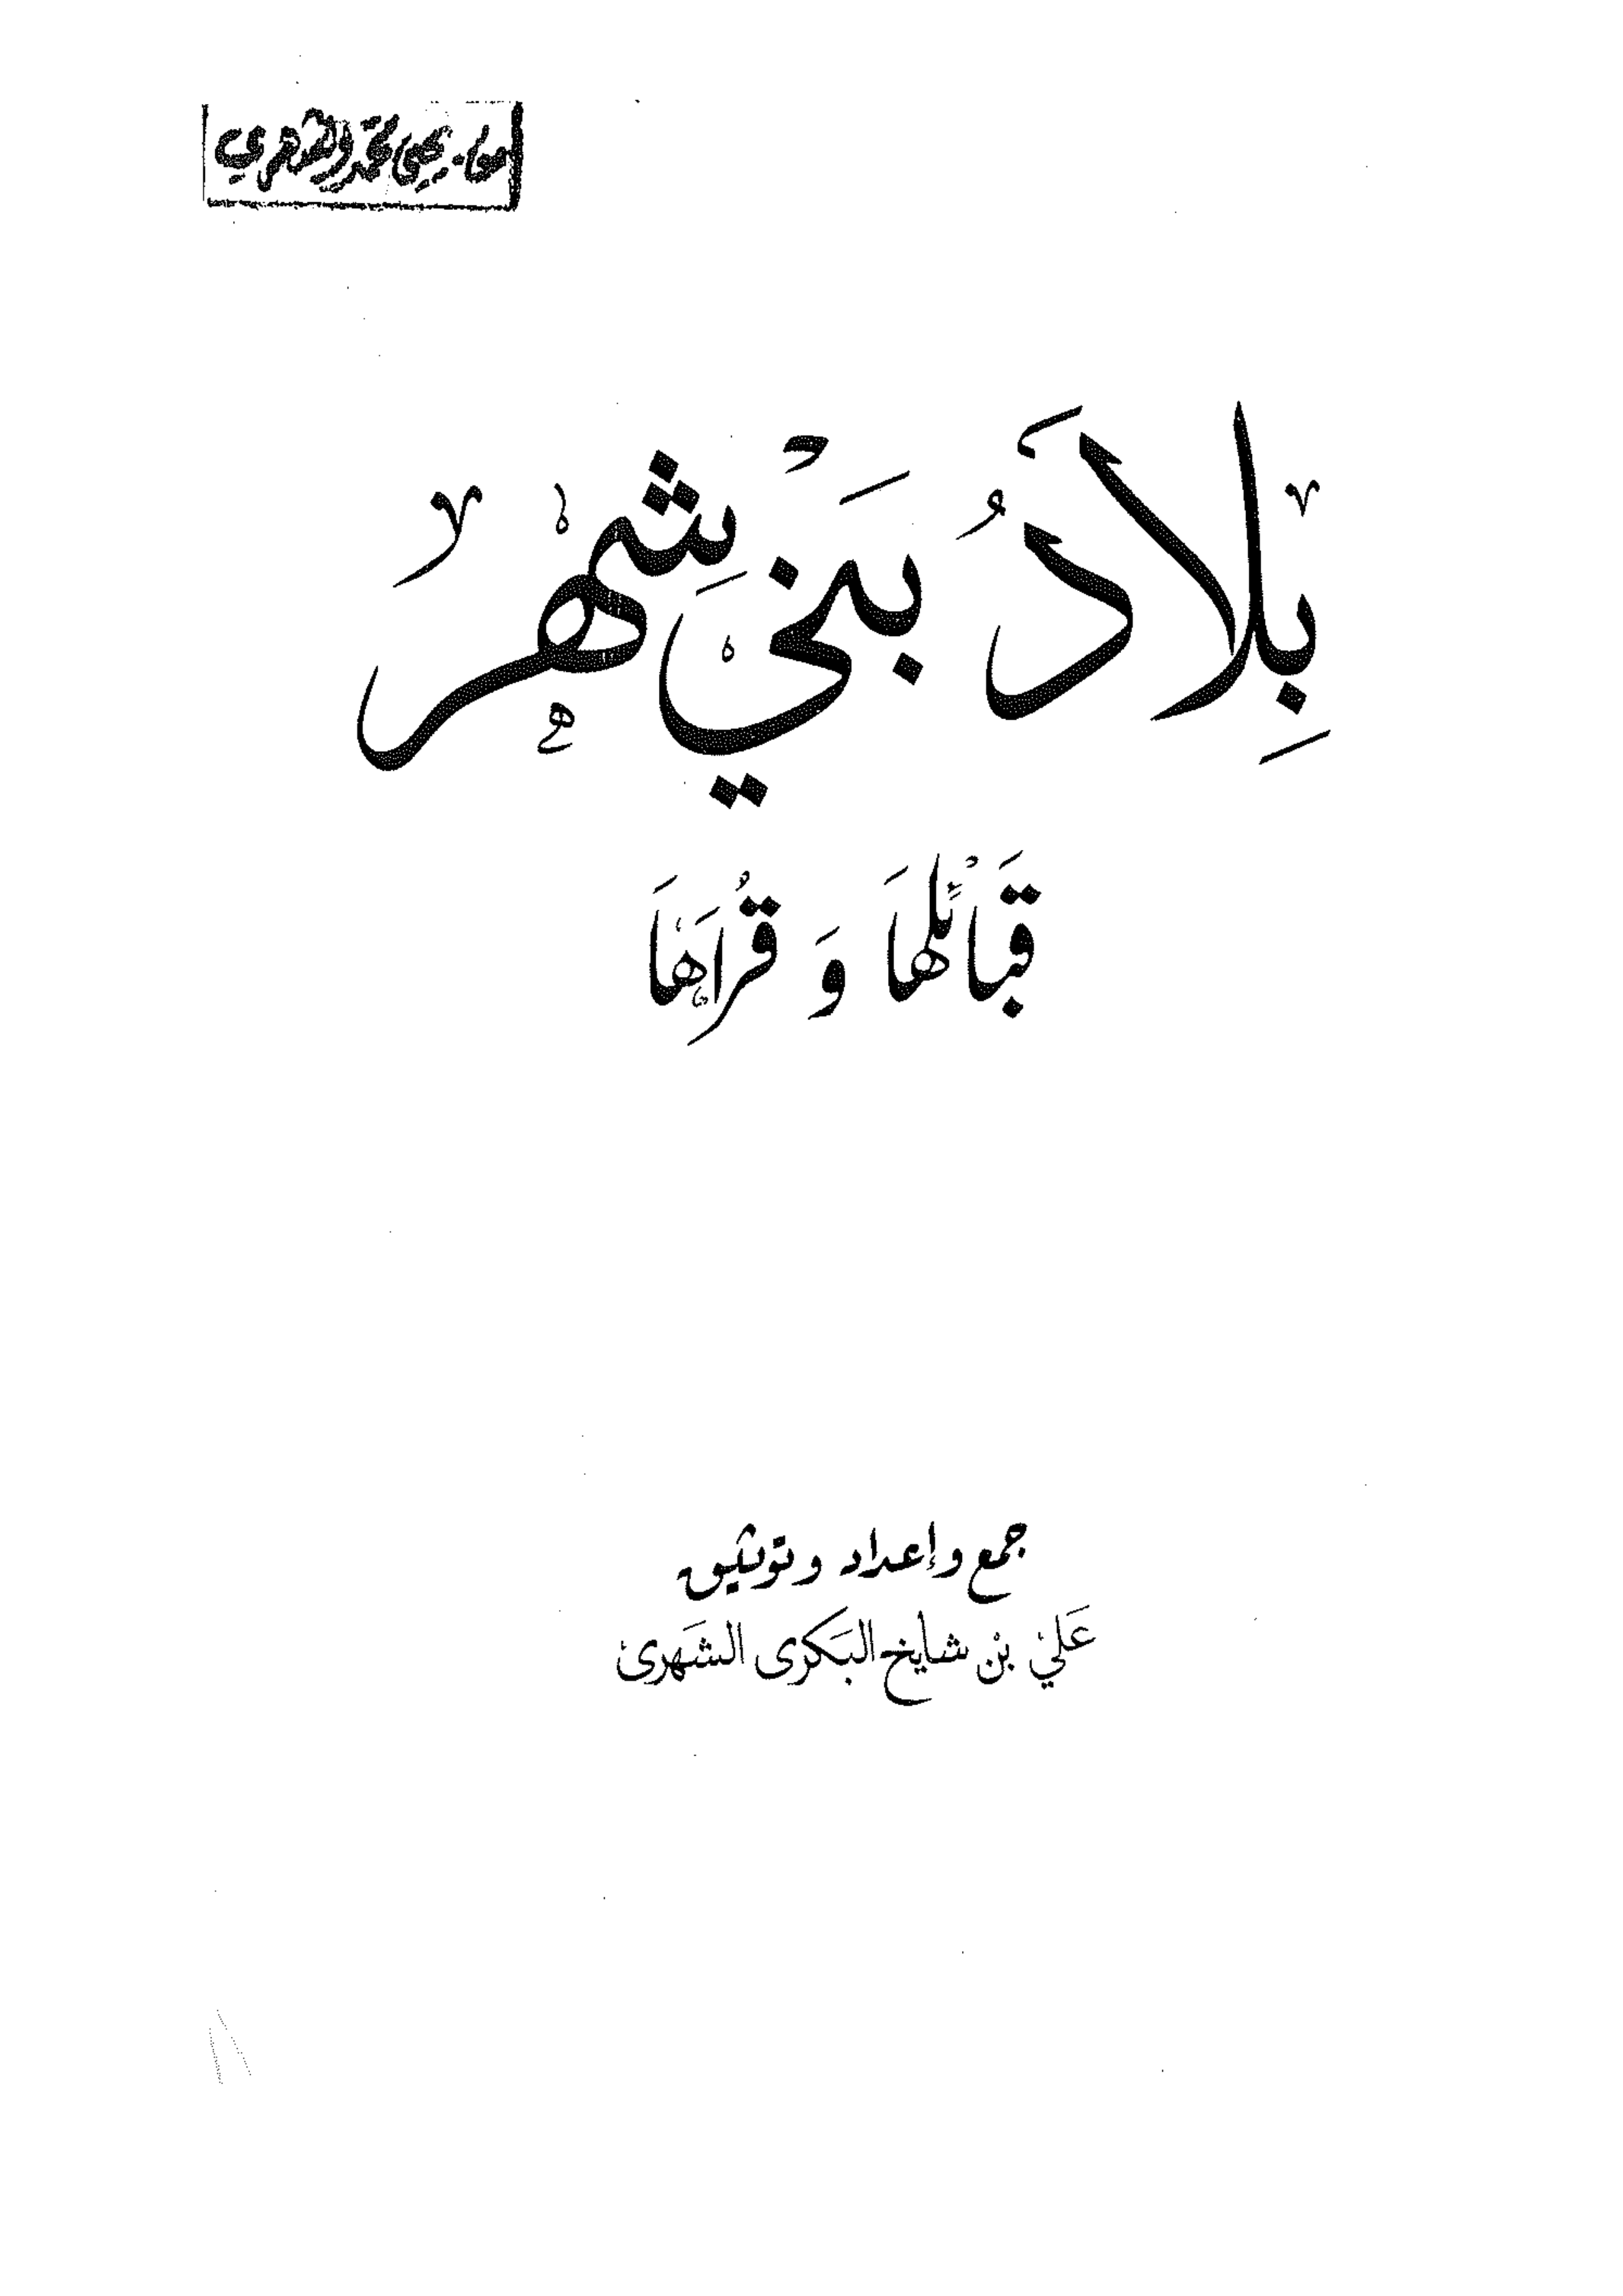 يحيى محمد الشهري
بِلَادُ بَنْي شِهْر
قَبَائْلهَا وَ قُرَاهَا
جمع وإعداد وتوثيق
عَلي بْن شايخ البَكرى الشَهرى